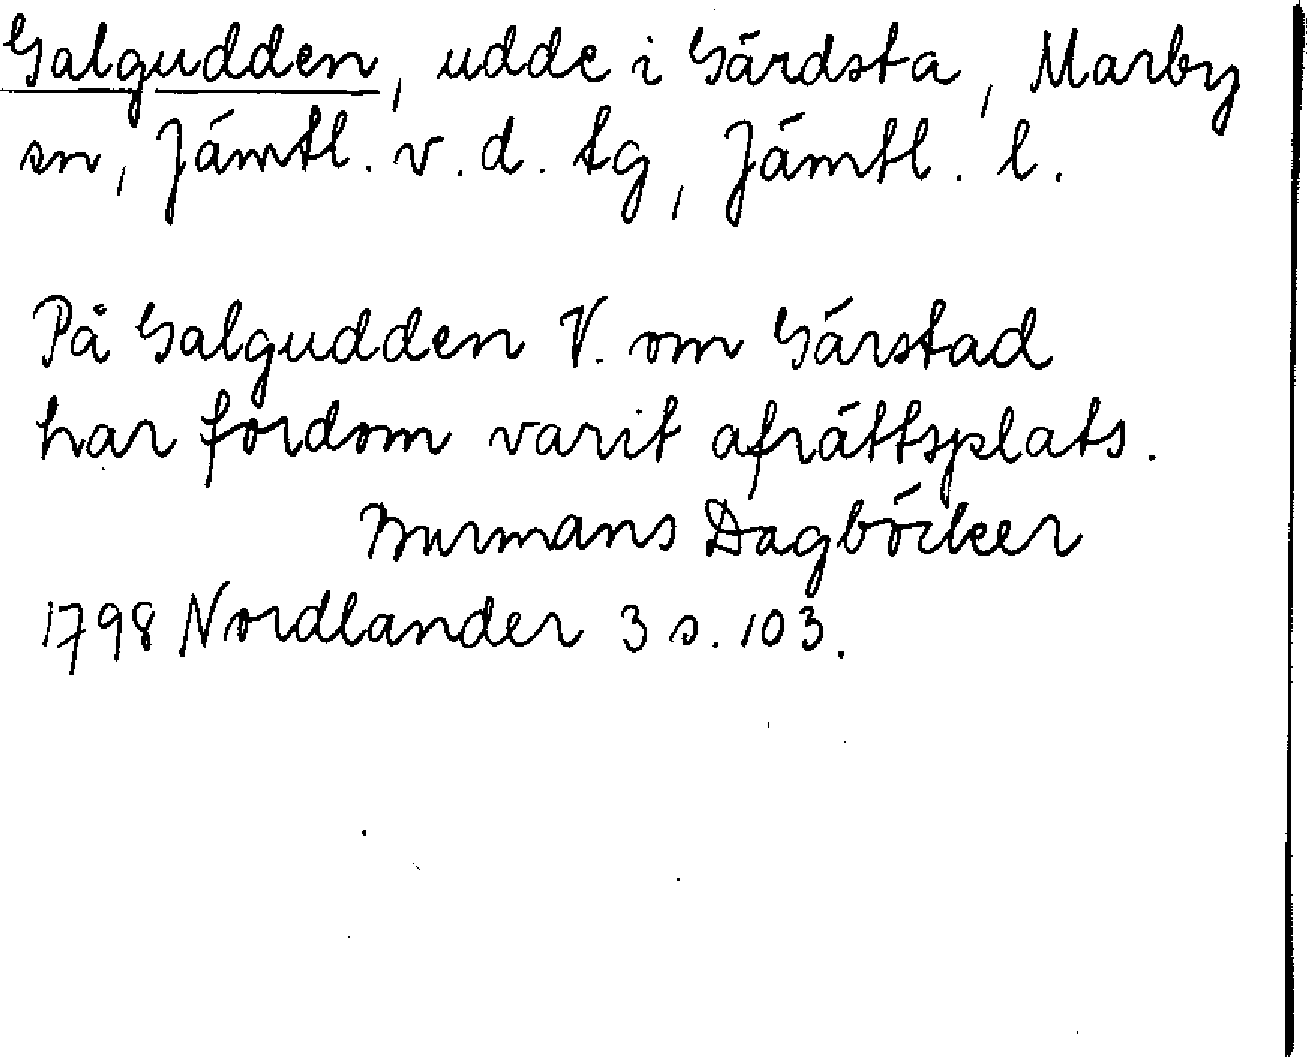 Galgudden, udde i Gärdsta, Marby
sn, Jämtl. v. d. tg, Jämtl. l.
På Galgudden V. om Gärstad
har fordom varit afrättsplats.
Burmans Dagböcker
1798 Nordlander 3 s. 103.